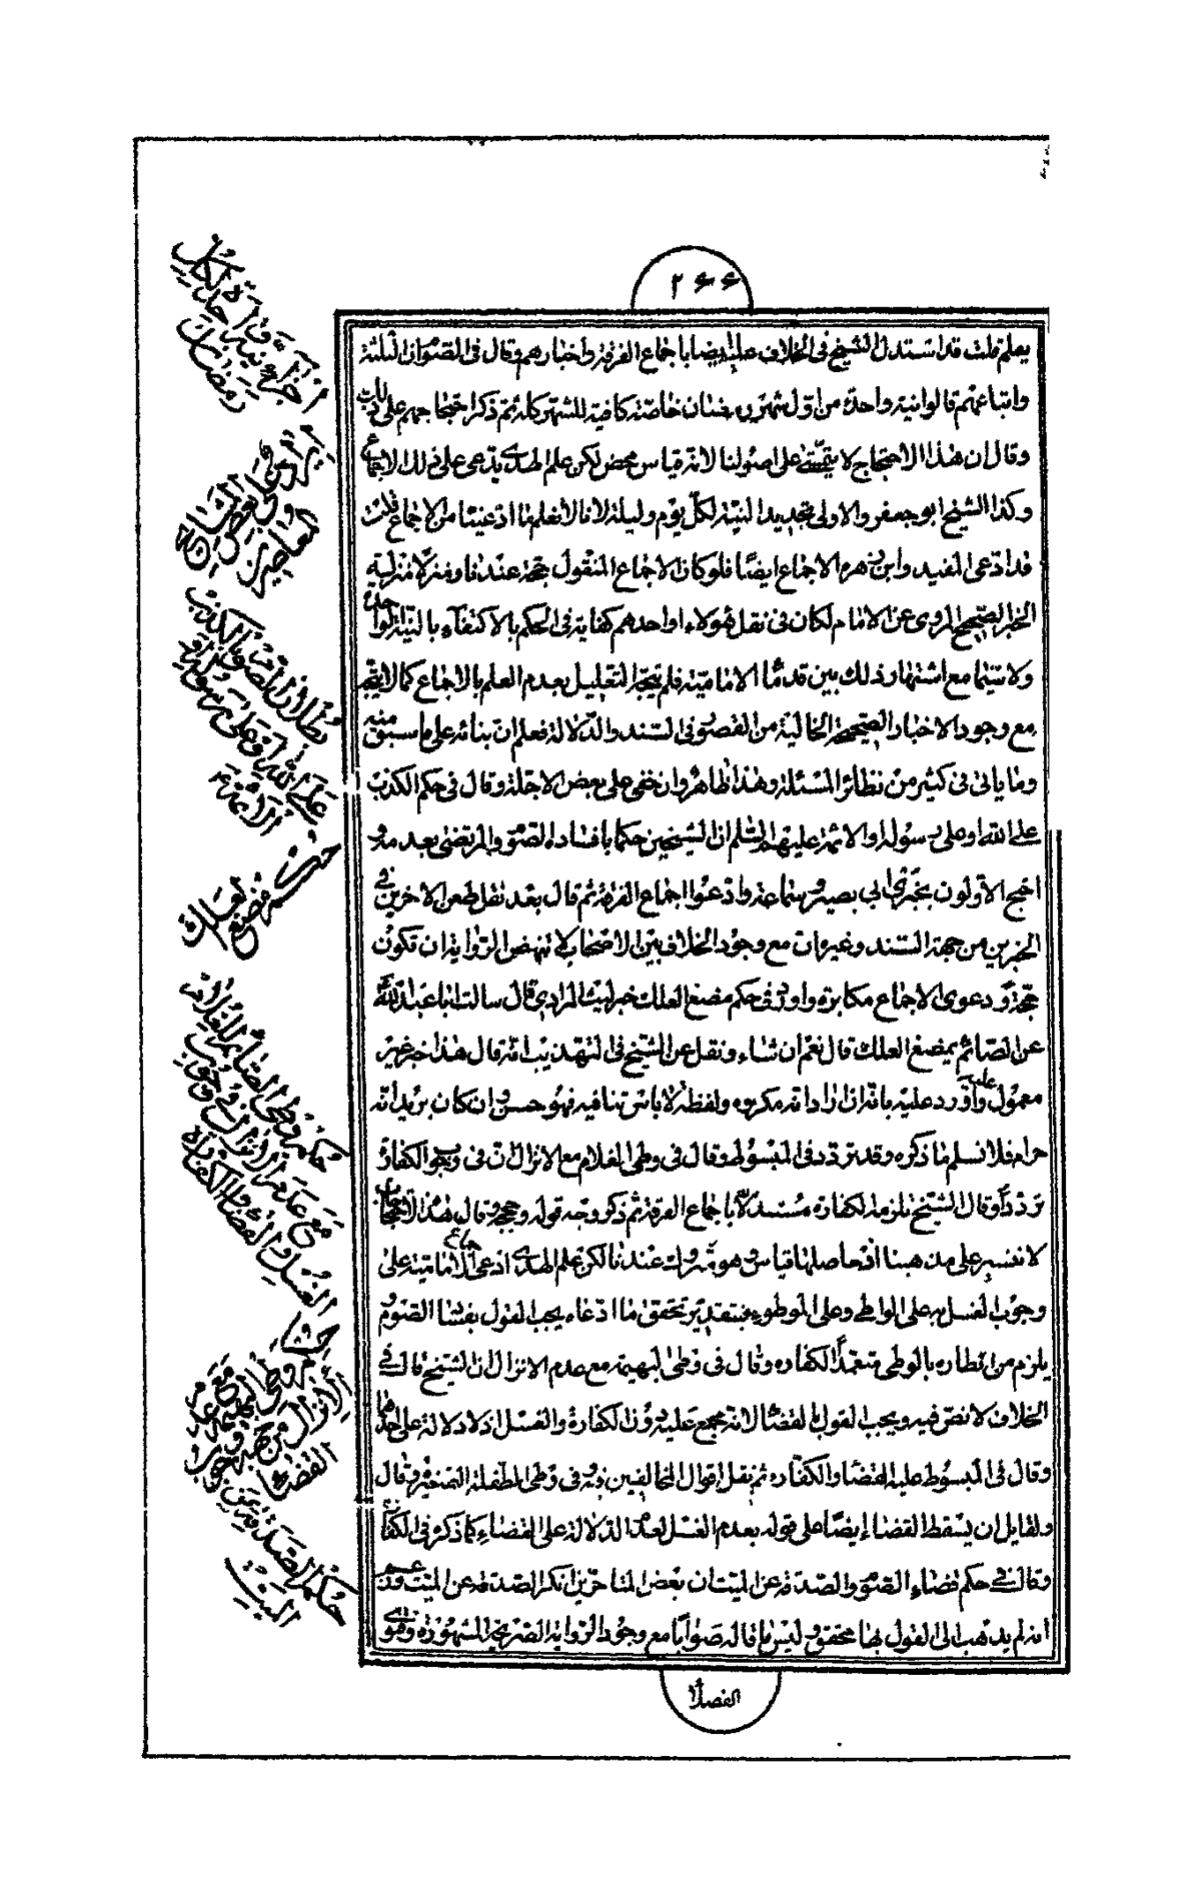 ٢٦٦
يعلم قلت قد استدل الشيخ فى الخلاف عليه ايضا باجماع الفرقة واخبارهم وقال فى الصوم ان الثلثة
واتباعهم قالوا نية واحدة من اول شهر رمضان خاصة كافية للشهر كله ثم ذكر احتجاجهم على ذلك
وقال ان هذا الاحتجاج لا يتمشى على اصولنا لانه قياس محض لكن علم الهدى يدعى على ذلك الاجماع
وكذا الشيخ ابو جعفر والاولى تجديد النية لكل يوم وليلة لانا لا نعلم ما ادعينا من الاجماع قلت
قد ادعى المفيد وابن زهره الاجماع ايضا فلو كان الاجماع المنقول حجة عندنا ومنزلا منزلة
الخبر الصحيح المروى عن الامام لكان فى نقل هولاء او احدهم كفاية فى الحكم بالاكتفاء بالنية الواحدة
ولا سيما مع اشتهار ذلك بين قدماء الامامية فلم يتجه التعليل بعدم العلم بالاجماع كما لا يتجه
مع وجود الاخبار الصحيحة الخالية من القصور فى السند والدلالة فعلم ان بنائه على ما سبق منه
وما ياتى فى كثير من نظائر المسئلة وهذا ظاهر وان خفى على بعض الاجلة وقال فى حكم الكذب
على الله او على رسوله او الائمة عليهم السلم ان الشيخين حكما بافساده الصوم والمرتضى بعدمه و
احتج الاولون بخبرى ابى بصير وسماعة وادعوا اجماع الفرقة ثم قال بعد نقل طعن الاخرين فى
الخبرين من جهة السند وغيره ان مع وجود الخلاف بين الاصحاب لا تنهض الرواية ان تكون
حجة و دعوى الاجماع مكابرة واورد فى حكم مضغ العلك خبر ليث المرادى قال سالت ابا عبد الله
عن الصائم يمضغ العلك قال نعم ان شاء ونقل عن الشيخ فى التهذيب انه قال هذا خبر غير
معمول عليه واورد عليه بانه ان اراد انه مكروه ولفظة لا باس تنافيه فهو حسن وان كان يريد انه
حرام فلا نسلم ما ذكره وقد تردد فى المبسوط وقال فى وطى الغلام مع الانزال ان فى وجوب الكفارة
ترددا وقال الشيخ يلزمه الكفارة مستدلا باجماع الفرقة ثم ذكر وجه قوله وحججه وقال هذا الاحتجاج
لا نفسير على مذهبنا اذ حاصلها قياس وهو متروك عندنا لكن علم الهدى ادعى اجماع الامامية على
وجوب الغسل به على الواطى وعلى الموطوء فبتقدير تحقق ما ادعاه يجب القول بفساد الصوم و
يلزم من افطاره بالوطى متعمدا الكفارة وقال فى وطى البهيمة مع عدم الانزال ان الشيخ قال فى
الخلاف لا نص فيه ويجب القول بالقضا لانه مجمع عليه دون الكفارة والغسل اذ لا دلالة على احدهما
وقال فى المبسوط عليه القضا والكفارة ثم نقل اقوال المخالفين فيه وفى وطى الطفلة الصغيرة وقال
ولقايل ان يسقط القضاء ايضا على قوله بعدم الغسل لعدم الدلالة على القضاء كما ذكر فى الكفارة
وقال فى حكم قضاء الصوم والصدقة عن الميت ان بعض المتاخرين انكر الصدقة عن الميت وزعم
انه لم يذهب الى القول بها محقق وليس ما قاله صوابا مع وجود الرواية الصريحة المشهورة وفتوى
الفضلاء
اجزاء نية واحدة لكل
رمضان
حكم مضغ العلك
حكم وطى الصائم للغلام
مع عدم الانزال فى وجوب
الغسل والقضاء والكفارة
حكم الصدقة عن
الميت